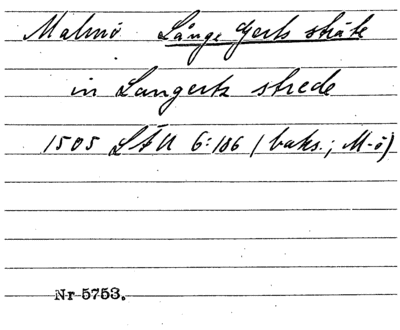 Malmö Långe Gerts stræte
in Langertz strede
1505 LÅU 6:186 (baks.; M-ö)
Nr 5753.